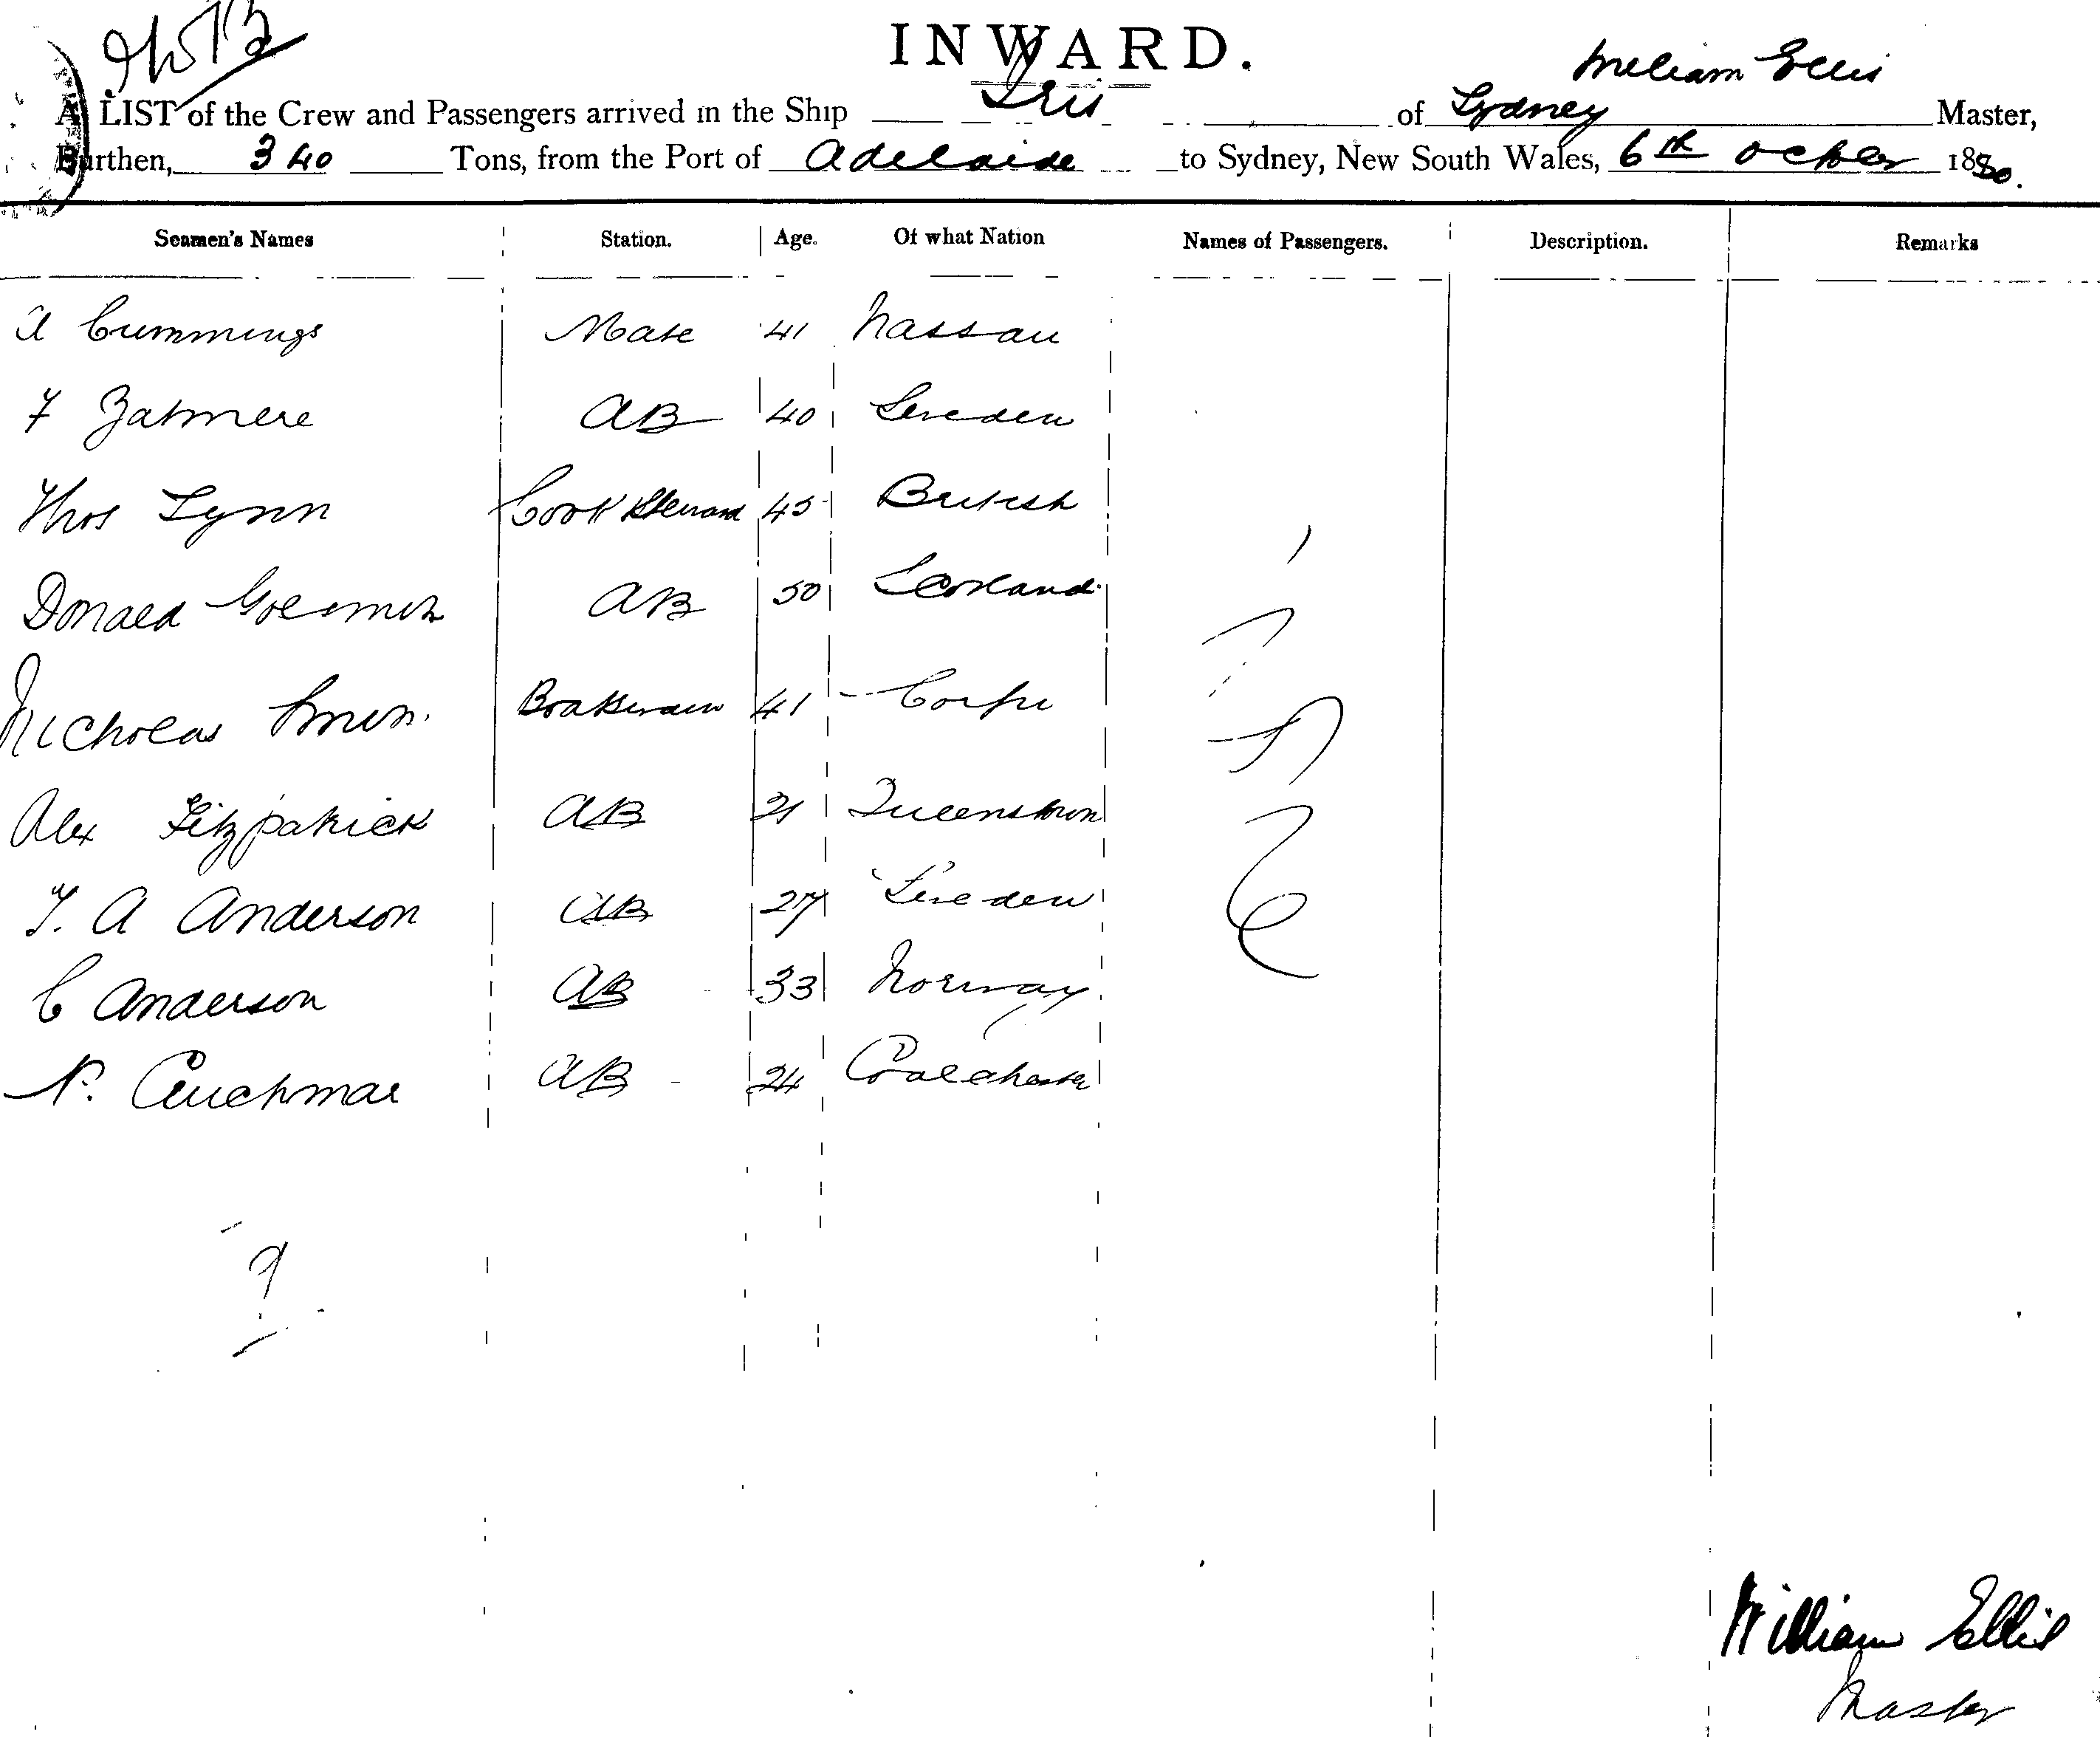 INWARD.
William Ellis
A LIST of the Crew and Passengers arrived in the Ship Iris of Sydney Master,
Burthen, 340 Tons, from the Port of Adelaide to Sydney, New South Wales, 6th October 1880.
Seamen's Names Station. Age. Of what Nation Names of Passengers. Description. Remarks
A Cummings Mate 41 Nassau
F Zatmere AB 40 Sweden
Thos Lynn Cook Steward 45 British
Donald AB 50 Scotland
Nicholas Boatswain 41 Corfu
Alex Fitzpatrick AB 21 Queenstown
T. A Anderson AB 27 Sweden
C Anderson AB 33 Norway
N. AB 24
9
William Ellis
Master